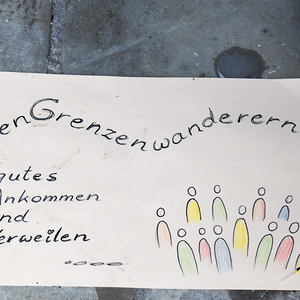 en Grenzenwanderern
gutes
Ankommen
und
Verweilen